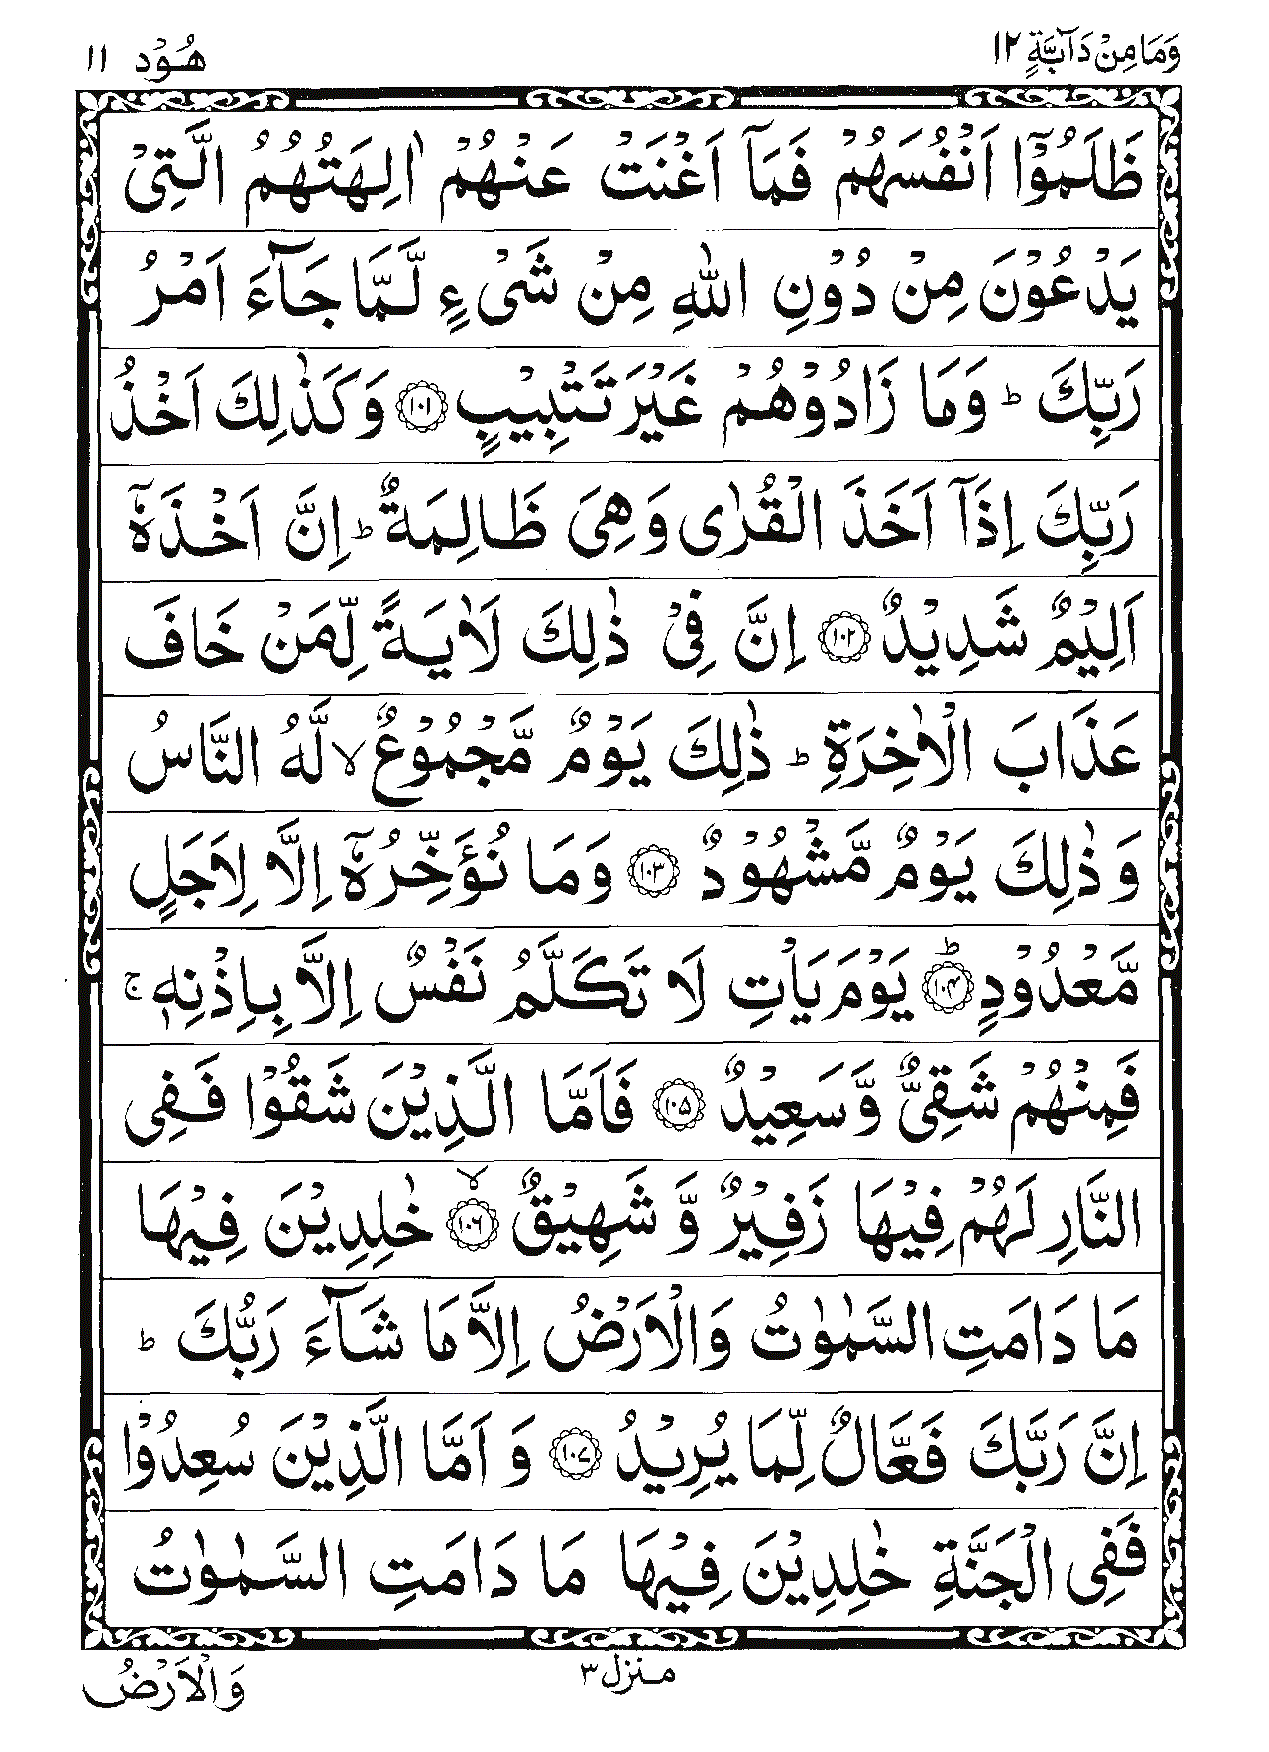 وَمَا مِنْ دَآبَّةٍ ١٢
هُوْد ١١
ظَلَمُوْۤا اَنْفُسَهُمْ فَمَاۤ اَغْنَتْ عَنْهُمْ اٰلِهَتُهُمُ الَّتِیْ
یَدْعُوْنَ مِنْ دُوْنِ اللّٰهِ مِنْ شَیْءٍ لَّمَّا جَآءَ اَمْرُ
رَبِّكَ ؕ وَمَا زَادُوْهُمْ غَیْرَ تَتْبِیْبٍ ۝١٠١ وَكَذٰلِكَ اَخْذُ
رَبِّكَ اِذَاۤ اَخَذَ الْقُرٰی وَهِیَ ظَالِمَةٌ ؕ اِنَّ اَخْذَهٗۤ
اَلِیْمٌ شَدِیْدٌ ۝١٠٢ اِنَّ فِیْ ذٰلِكَ لَاٰیَةً لِّمَنْ خَافَ
عَذَابَ الْاٰخِرَةِ ؕ ذٰلِكَ یَوْمٌ مَّجْمُوْعٌ ۙ لَّهُ النَّاسُ
وَ ذٰلِكَ یَوْمٌ مَّشْهُوْدٌ ۝١٠٣ وَمَا نُؤَخِّرُهٗۤ اِلَّا لِاَجَلٍ
مَّعْدُوْدٍ ؕ۝١٠٤ یَوْمَ یَاْتِ لَا تَكَلَّمُ نَفْسٌ اِلَّا بِاِذْنِهٖ ۚ
فَمِنْهُمْ شَقِیٌّ وَّسَعِیْدٌ ۝١٠٥ فَاَمَّا الَّذِیْنَ شَقُوْا فَفِی
النَّارِ لَهُمْ فِیْهَا زَفِیْرٌ وَّ شَهِیْقٌ ۙ۝١٠٦ خٰلِدِیْنَ فِیْهَا
مَا دَامَتِ السَّمٰوٰتُ وَالْاَرْضُ اِلَّا مَا شَآءَ رَبُّكَ ؕ
اِنَّ رَبَّكَ فَعَّالٌ لِّمَا یُرِیْدُ ۝١٠٧ وَ اَمَّا الَّذِیْنَ سُعِدُوْا
فَفِی الْجَنَّةِ خٰلِدِیْنَ فِیْهَا مَا دَامَتِ السَّمٰوٰتُ
منزل ٣
وَالْاَرْضُ